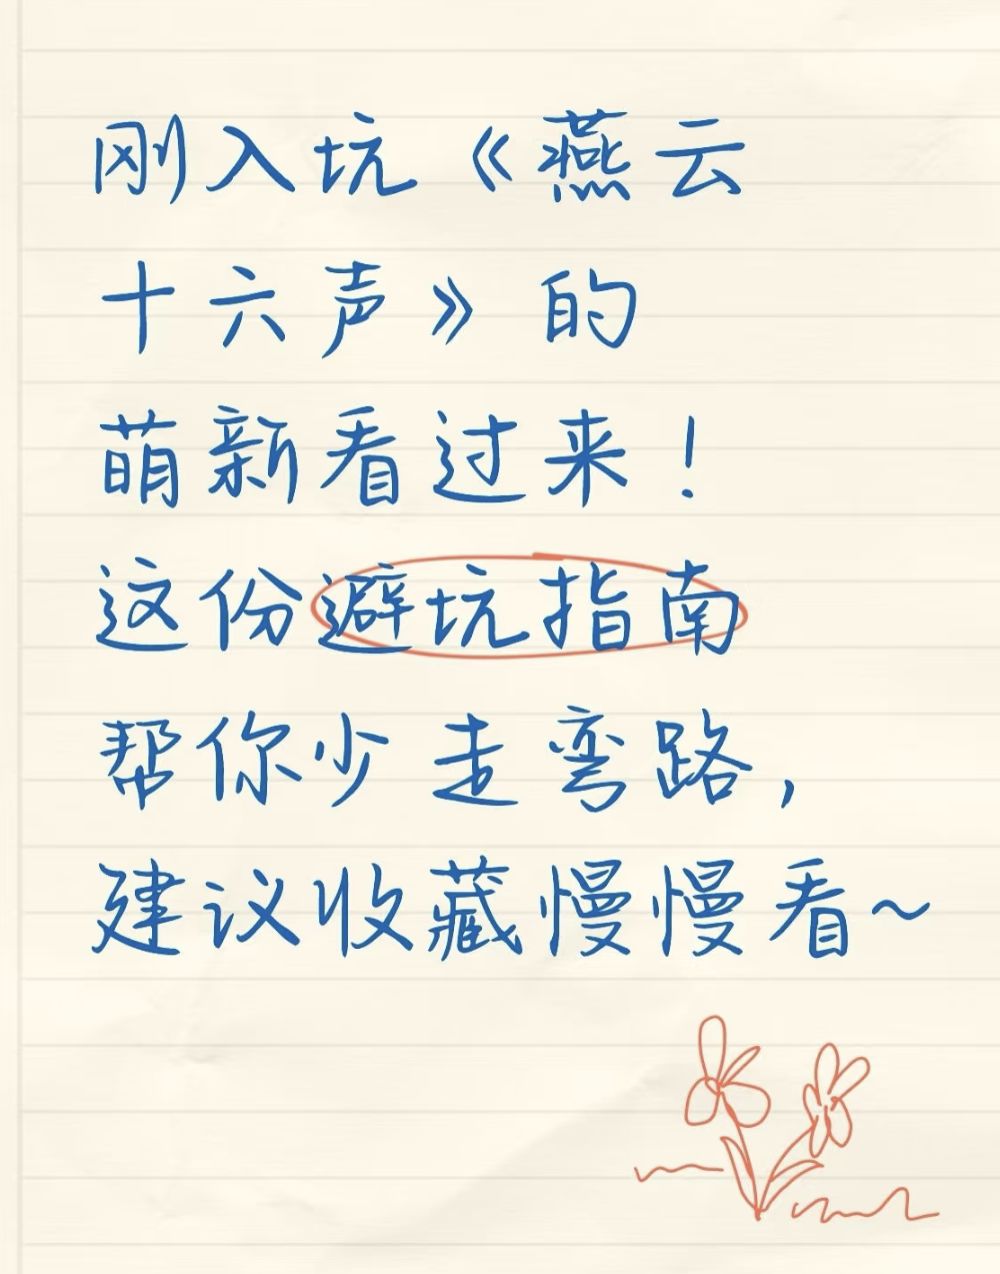 刚入坑《燕云
十六声》的
萌新看过来！
这份避坑指南
帮你少走弯路，
建议收藏慢慢看~